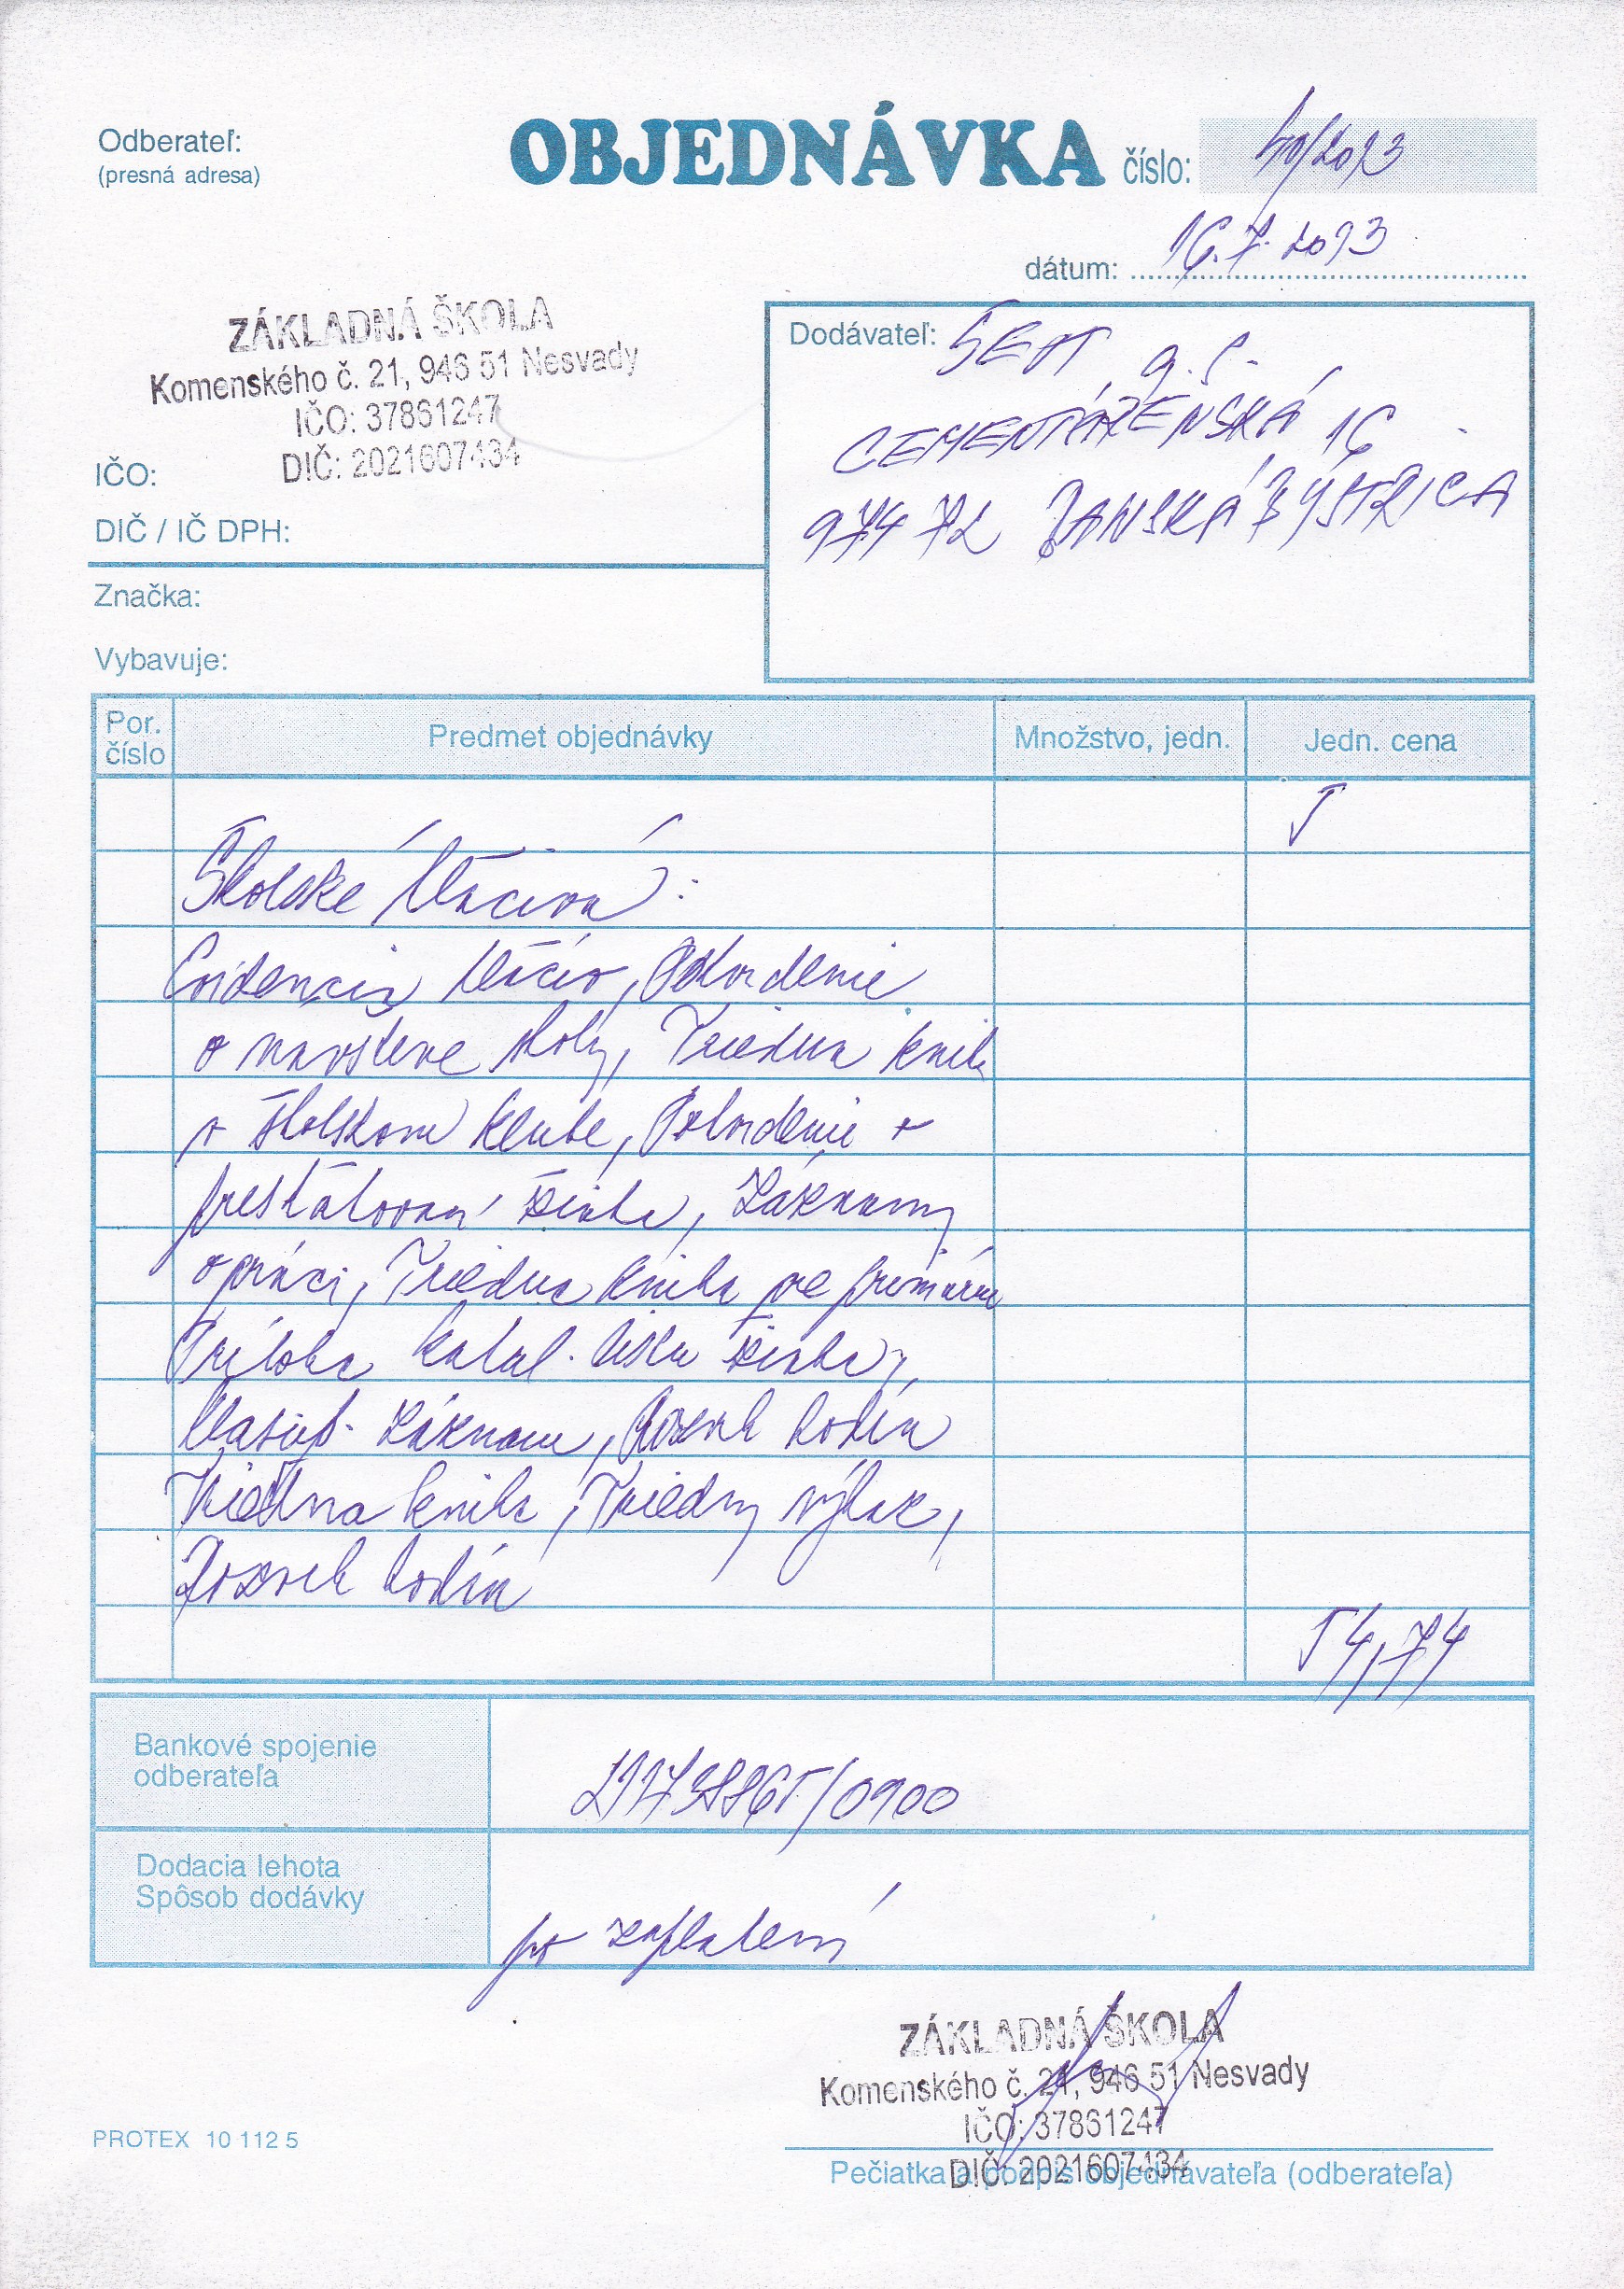 Odberateľ:
(presná adresa)
OBJEDNÁVKA číslo: 40/2013
dátum: 16.7.2013
ZÁKLADNÁ ŠKOLA
Komenského č. 21, 946 51 Nesvady
IČO: 37861247
DIČ: 2021607434
IČO:
DIČ / IČ DPH:
Značka:
Vybavuje:
Dodávateľ: ŠEVT a.s.
CEMENTÁRENSKÁ 16
974 72 BANSKÁ BYSTRICA
Por. číslo
Predmet objednávky
Množstvo, jedn.
Jedn. cena
Školské tlačivá:
Evidencia tlačív, Potvrdenie
o navšteve školy, Triedna kniha
v školskom klube, Potvrdenie o
prestátovaní žiaka, Záznamy
o práci, Triedna kniha pre primárne
Príloha katal. lístu žiaka,
záznam, Rozvrh hodín
Triedna kniha, Triedny výkaz,
Rozvrh hodín
54,74
Bankové spojenie
odberateľa
/0900
Dodacia lehota
Spôsob dodávky
po zaplatení
ZÁKLADNÁ ŠKOLA
Komenského č. 21, 946 51 Nesvady
IČO: 37861247
DIČ: 2021607434
PROTEX 10 112 5
Pečiatka a podpis objednávateľa (odberateľa)